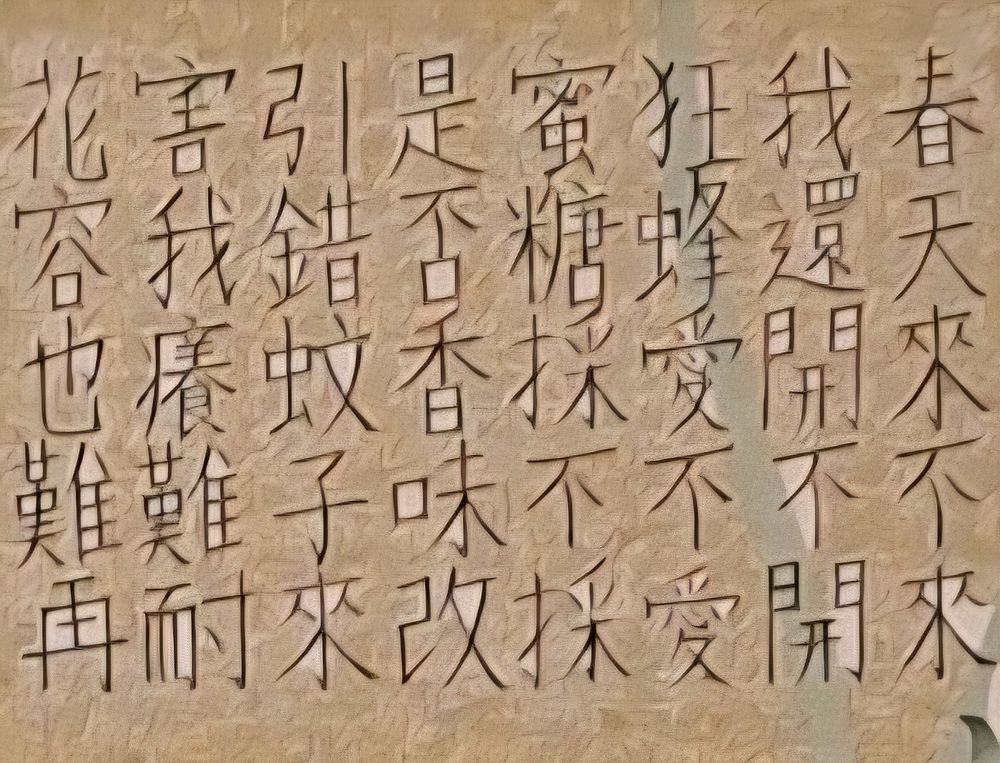 春天來不來
我還開不開
狂蜂愛不愛
蜜糖採不採
是否香味改
引錯蚊子來
害我癢難耐
花容也難再